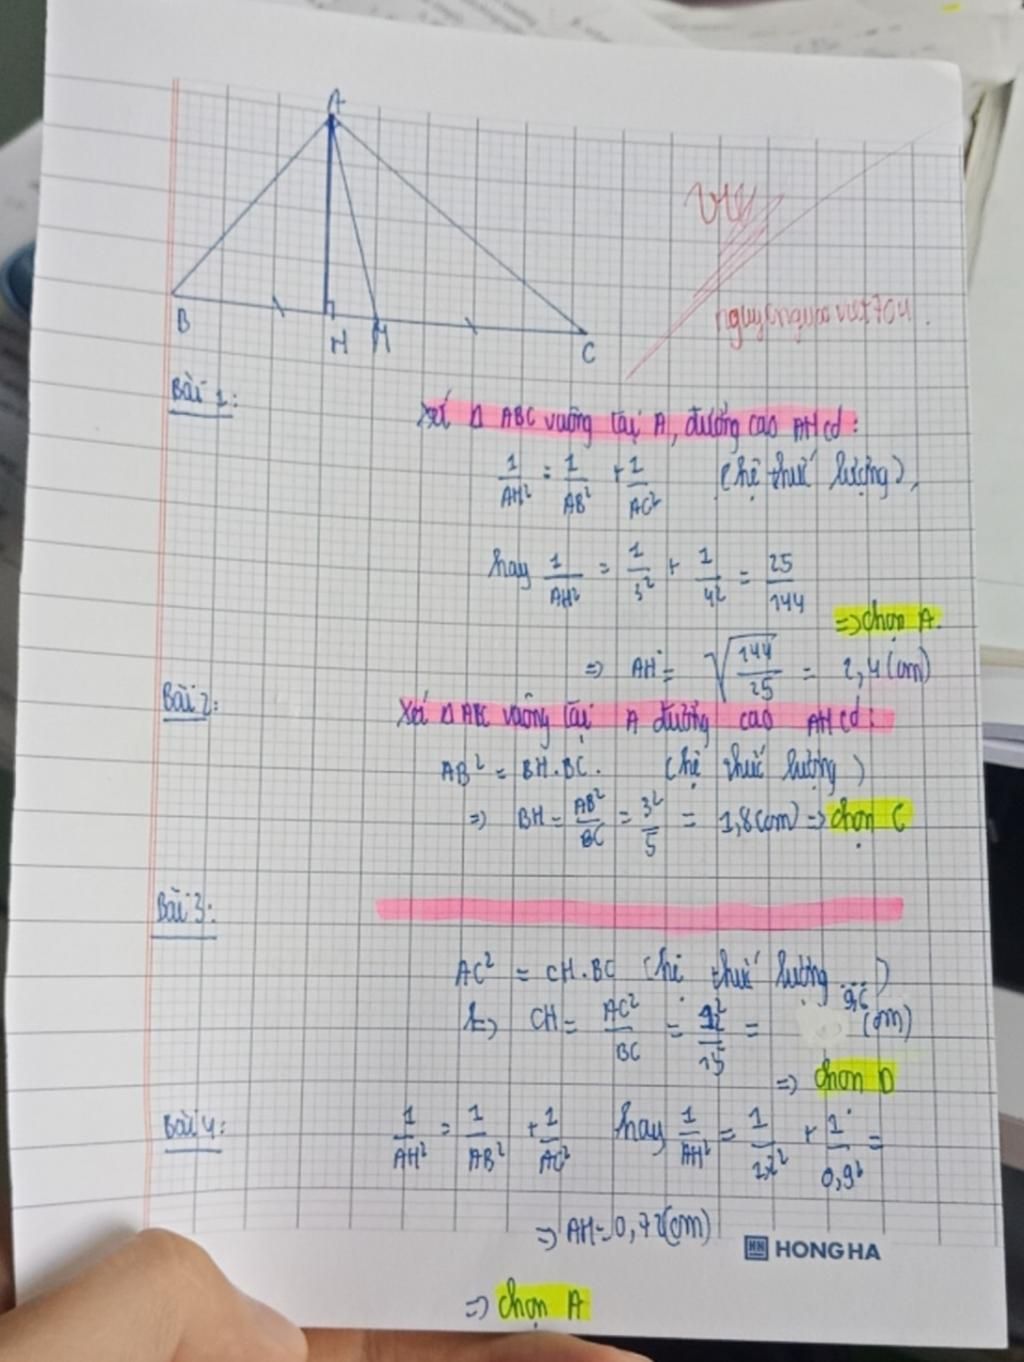 A
B
H
M
C
Việt
nguyenquocviet704.
Bài 1:
Xét Δ ABC vuông tại A, đường cao AH có:
1/AH² = 1/AB² + 1/AC² (hệ thức lượng),
hay 1/AH² = 1/3² + 1/4² = 25/144
=> chọn A.
=> AH = √144/25 = 2,4 (cm)
Bài 2:
Xét Δ ABC vuông tại A đường cao AH có:
AB² = BH.BC. (hệ thức lượng)
=> BH = AB²/BC = 3²/5 = 1,8 (cm) => chọn C
Bài 3:
AC² = CH.BC (hệ thức lượng)
=> CH = AC²/BC = 12²/15 = 9,6 (cm)
=> chọn D
Bài 4:
1/AH² = 1/AB² + 1/AC² hay 1/AH² = 1/1,2² + 1/0,9² =
=> AH = 0,72 (cm)
HN HONG HA
=> chọn A